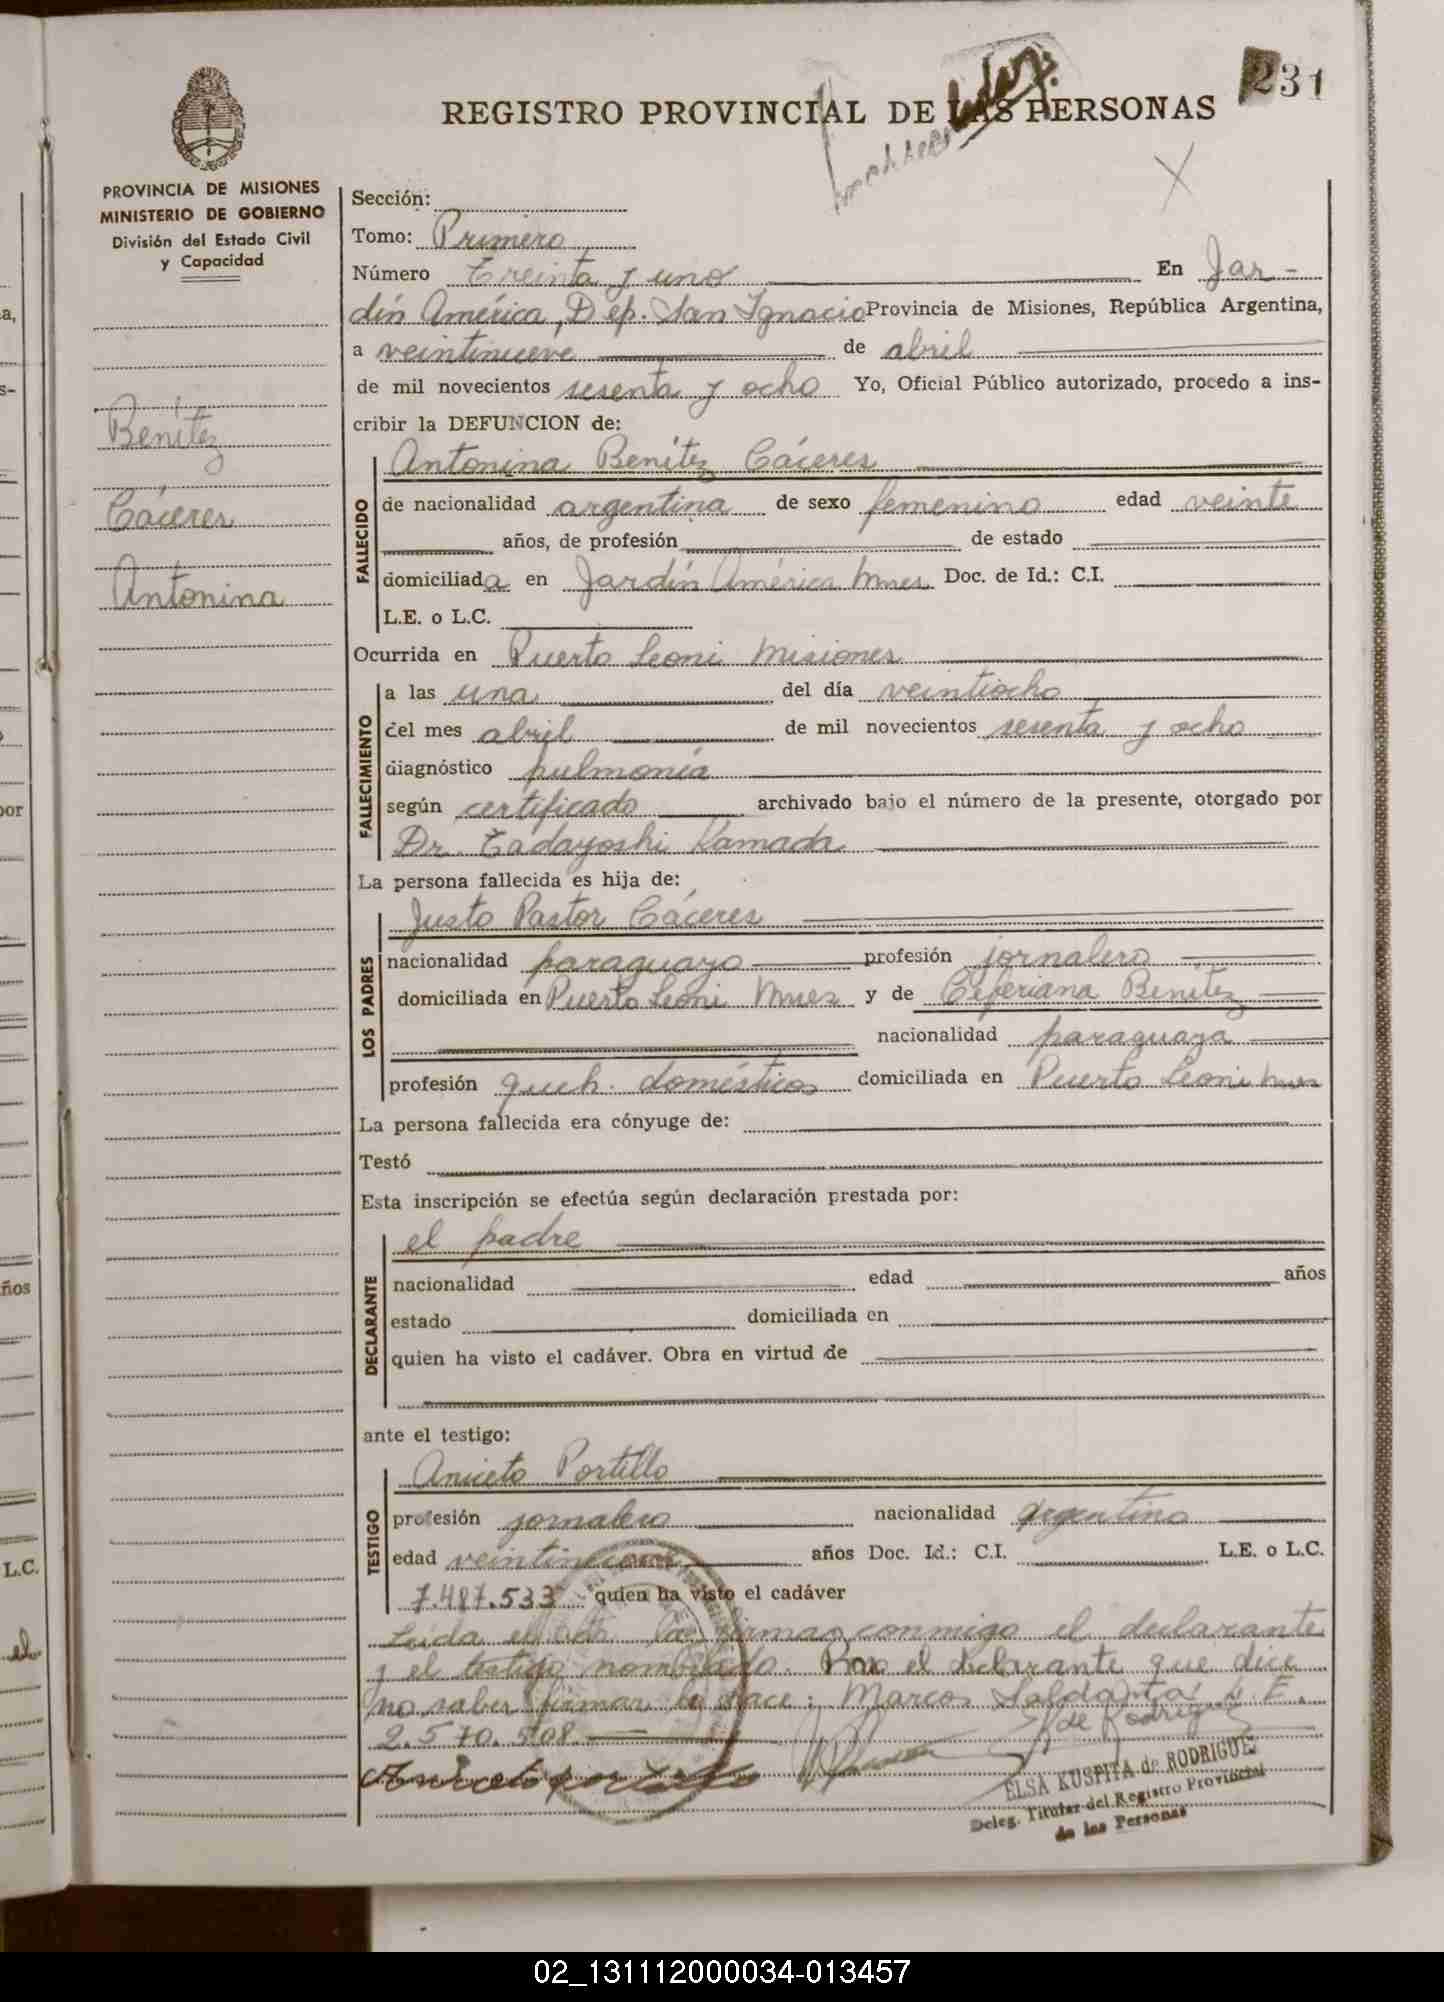 231
REGISTRO PROVINCIAL DE LAS PERSONAS
PROVINCIA DE MISIONES
MINISTERIO DE GOBIERNO
División del Estado Civil
y Capacidad
Benítez
Cáceres
Antonina
Sección:
Tomo: Primero
Número Treinta y uno En Jar-
dín América, Dep. San Ignacio Provincia de Misiones, República Argentina,
a veintinueve de abril
de mil novecientos sesenta y ocho Yo, Oficial Público autorizado, procedo a ins-
cribir la DEFUNCION de:
FALLECIDO
Antonina Benítez Cáceres
de nacionalidad argentina de sexo femenino edad veinte
años, de profesión de estado
domiciliada en Jardín América Mnes Doc. de Id.: C.I.
L.E. o L.C.
Ocurrida en Puerto Leoni Misiones
FALLECIMIENTO
a las una del día veintiocho
del mes abril de mil novecientos sesenta y ocho
diagnóstico pulmonía
según certificado archivado bajo el número de la presente, otorgado por
Dr. Tadayoshi Kamada
La persona fallecida es hija de:
LOS PADRES
Justo Pastor Cáceres
nacionalidad paraguayo profesión jornalero
domiciliada en Puerto Leoni Mnes y de Ceferiana Benítez
nacionalidad paraguaya
profesión queh. domésticos domiciliada en Puerto Leoni Mnes
La persona fallecida era cónyuge de:
Testó
Esta inscripción se efectúa según declaración prestada por:
DECLARANTE
el padre
nacionalidad edad años
estado domiciliada en
quien ha visto el cadáver. Obra en virtud de
ante el testigo:
TESTIGO
Aniceto Portillo
profesión jornalero nacionalidad argentino
edad veintinueve años Doc. Id.: C.I. L.E. o L.C.
7.487.533 quien ha visto el cadáver
Leída el acta la firman conmigo el declarante
y el testigo nombrado. Por el declarante que dice
no saber firmar lo hace: Marcos Saldaña L.E.
2.570.508
de Rodriguez
ELSA KUSPITA de RODRIGUEZ
Deleg. Titular del Registro Provincial
de las Personas
02_131112000034-013457